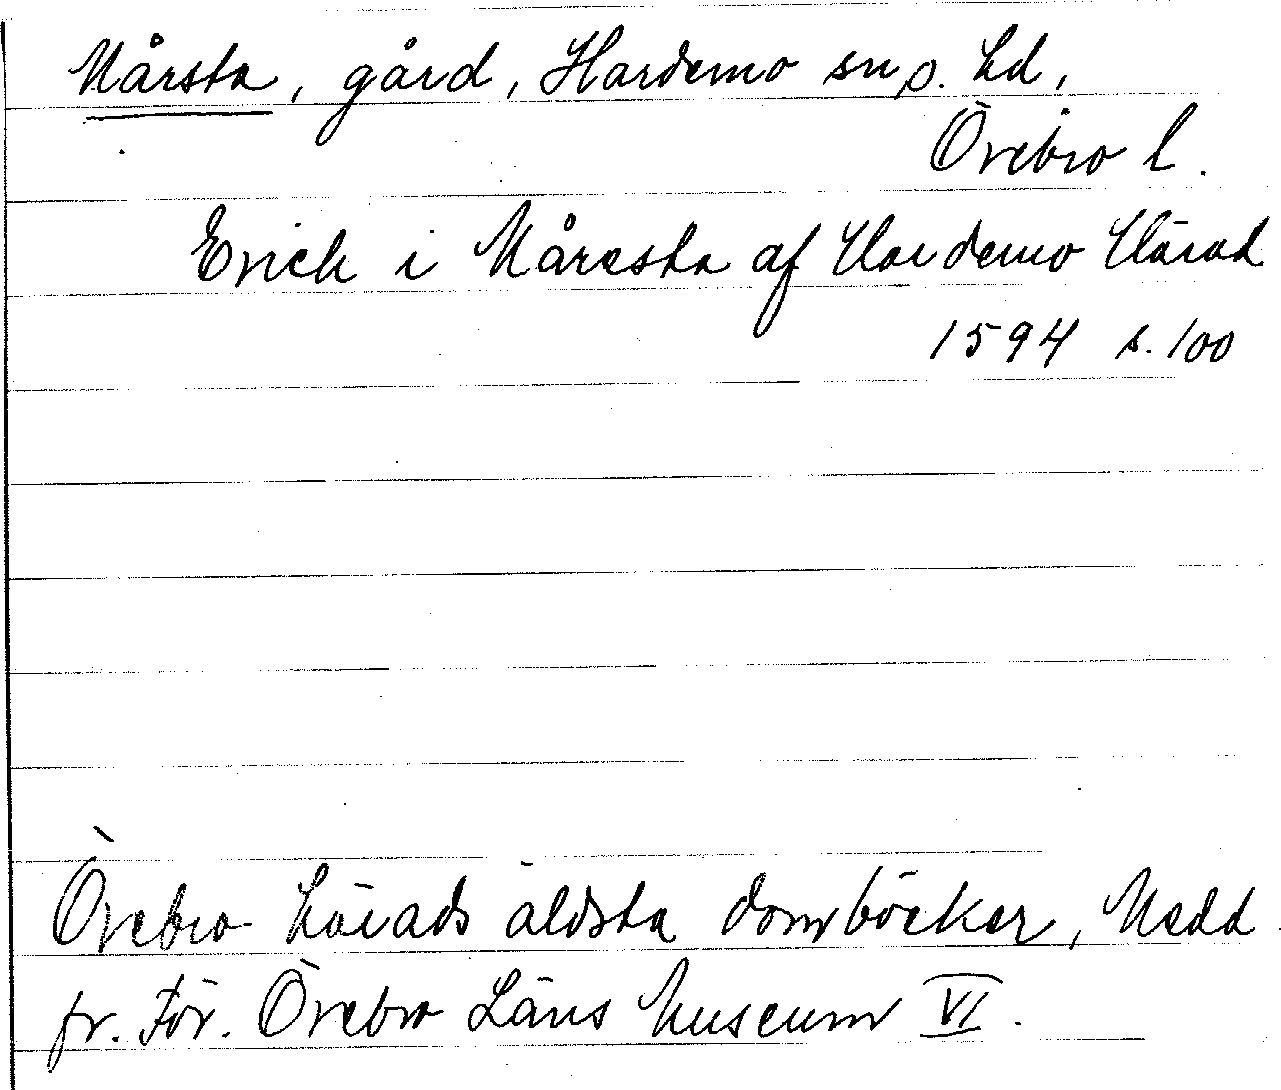 Mårsta, gård, Hardemo sn o. hd,
Örebro l.
Erich i Måresta af Hardemo Härad
1594 s. 100
Örebro härads äldsta domböcker, Medd.
fr. För. Örebro Läns Museum VI.